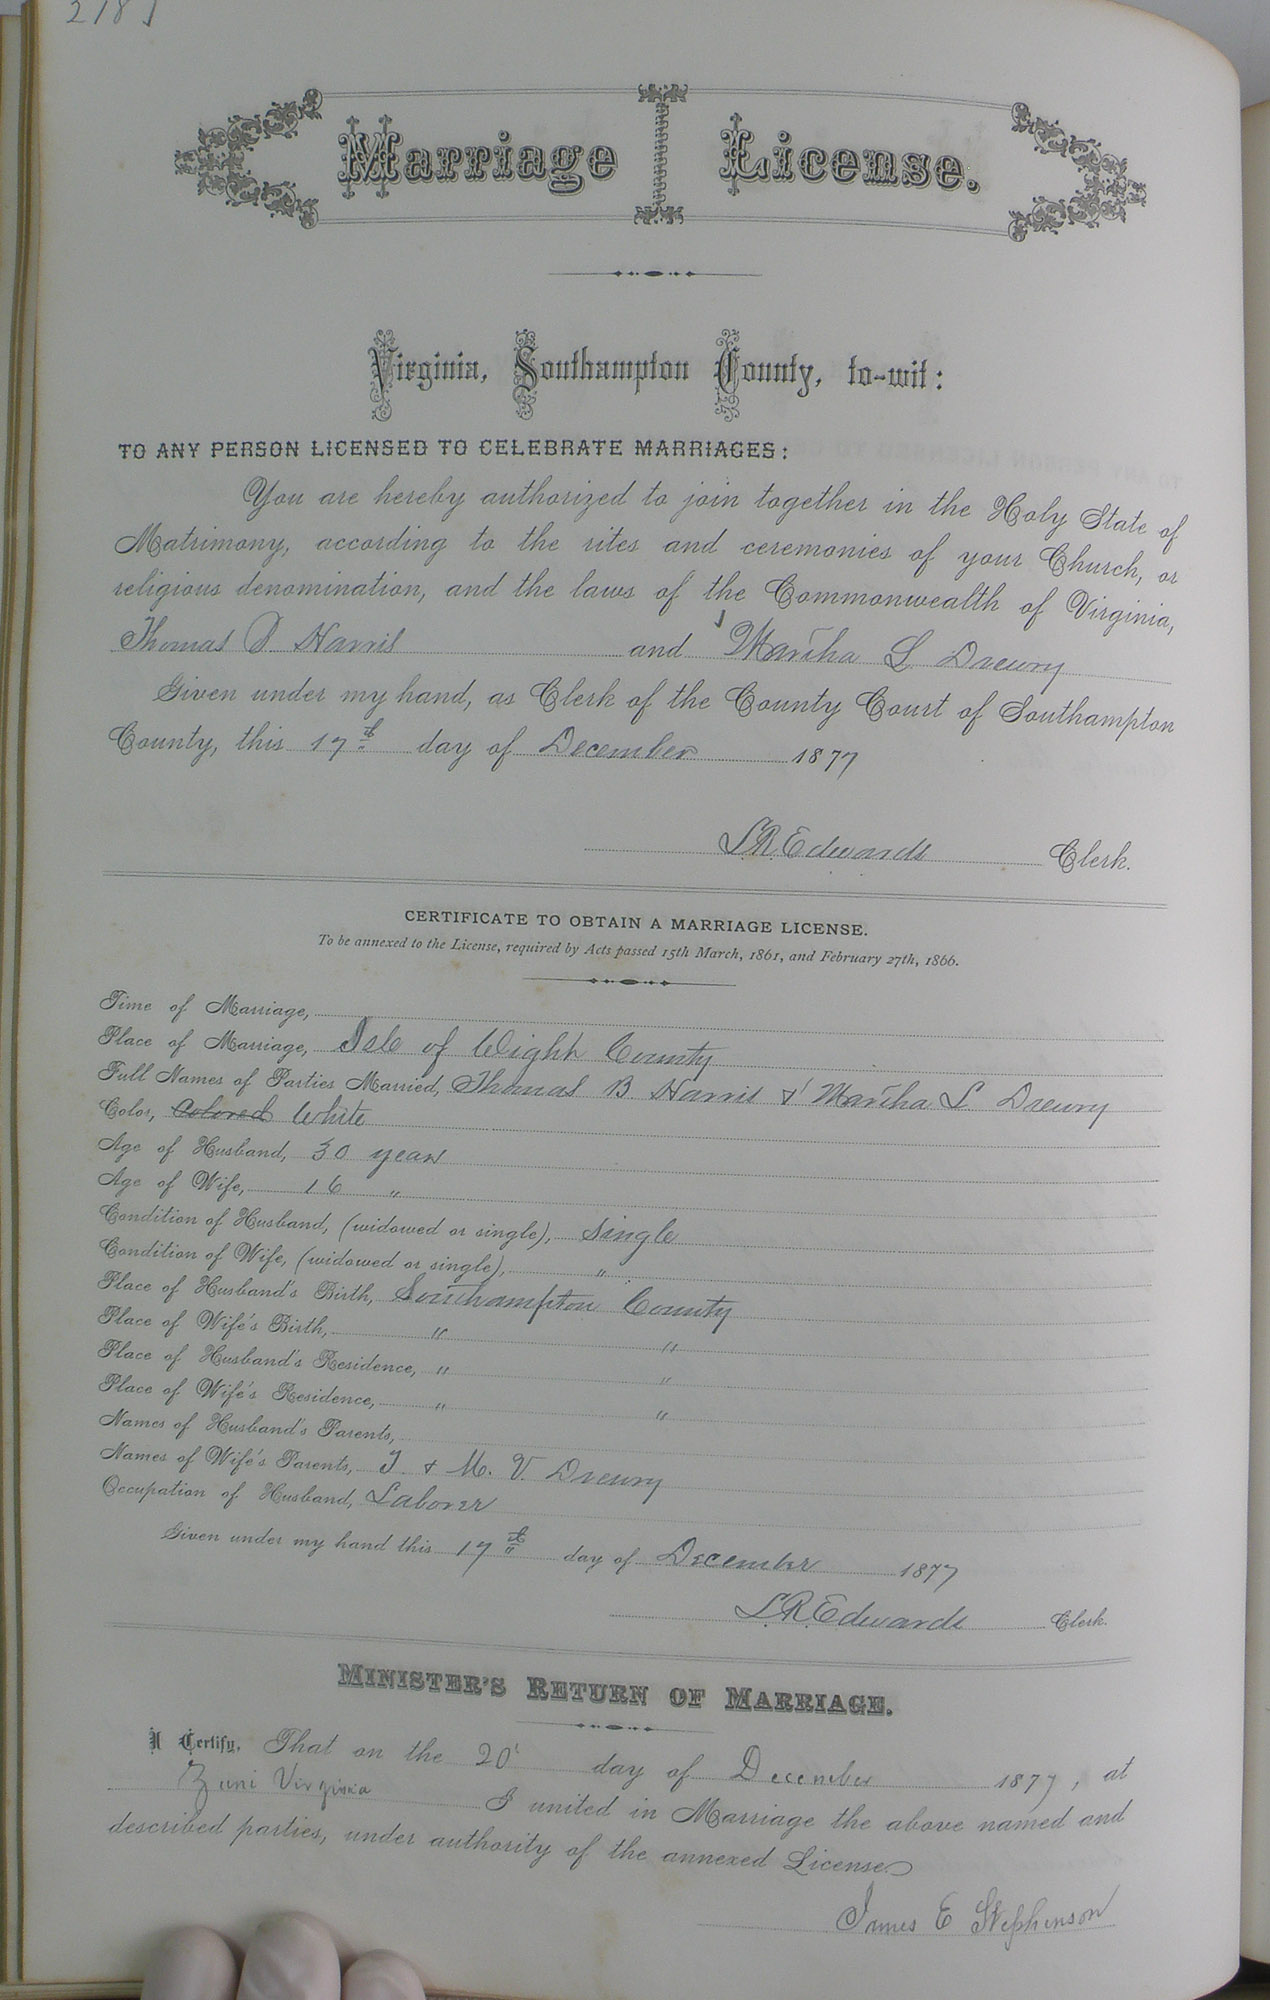 Marriage License.
Virginia, Southampton County, to-wit:
TO ANY PERSON LICENSED TO CELEBRATE MARRIAGES:
You are hereby authorized to join together in the Holy State of
Matrimony, according to the rites and ceremonies of your Church, or
religious denomination, and the laws of the Commonwealth of Virginia,
Thomas Harris and Martha L Drewry
Given under my hand, as Clerk of the County Court of Southampton
County, this 17th day of December 1877
L.R. Edwards Clerk.
CERTIFICATE TO OBTAIN A MARRIAGE LICENSE.
To be annexed to the License, required by Acts passed 15th March, 1861, and February 27th, 1866.
Time of Marriage,
Place of Marriage, Isle of Wight County
Full Names of Parties Married, Thomas B Harris & Martha L. Drewry
Color, Colored White
Age of Husband, 30 years
Age of Wife, 16 "
Condition of Husband, (widowed or single), Single
Condition of Wife, (widowed or single), "
Place of Husband's Birth, Southampton County
Place of Wife's Birth, " "
Place of Husband's Residence, " "
Place of Wife's Residence, " "
Names of Husband's Parents,
Names of Wife's Parents, & M. V. Drewry
Occupation of Husband, Laborer
Given under my hand this 17th day of December 1877
L.R. Edwards Clerk.
MINISTER'S RETURN OF MARRIAGE.
I Certify, That on the 20 day of December 1877, at
Zuni Virginia I united in Marriage the above named and
described parties, under authority of the annexed License.
James E Stephenson